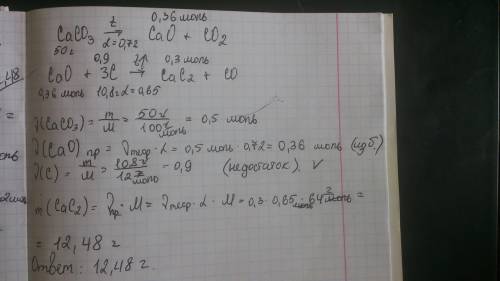 0,36 моль
CaCO₃ →(t, α=0,72) CaO + CO₂
50г
0,9 0,3 моль
CaO + 3C →(t↑) CaC₂ + CO
0,36 моль 10,8г α=0,65
ν(CaCO₃) = m/M = 50г/100 г/моль = 0,5 моль
ν(CaO) пр = νтеор · α = 0,5 моль · 0,72 = 0,36 моль (изб.)
ν(C) = m/M = 10,8г/12 г/моль = 0,9 (недостаток). V
m(CaC₂) = νпр · M = νтеор · α · M = 0,3 · 0,65 · 64 г/моль =
= 12,48 г
Ответ: 12,48 г.
,48